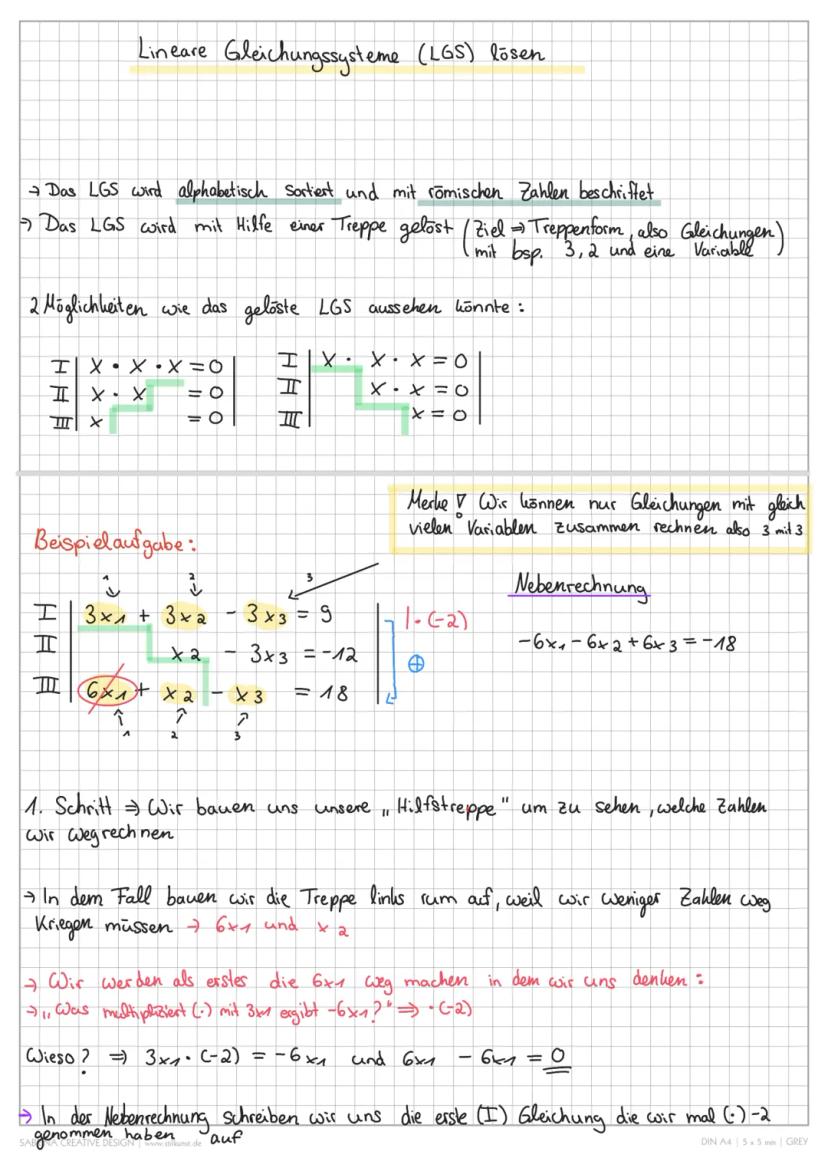 Lineare Gleichungssysteme (LGS) lösen
→ Das LGS wird alphabetisch sortiert und mit römischen Zahlen beschriftet
→ Das LGS wird mit Hilfe einer Treppe gelöst (Ziel ⇒ Treppenform, also Gleichungen
mit bsp. 3, 2 und eine Variable)
2 Möglichkeiten wie das gelöste LGS aussehen könnte:
I | x • x • x = 0 |
II | x • x = 0 |
III | x = 0 |
I | x • x • x = 0 |
II | x • x = 0 |
III | x = 0 |
Merke ! Wir können nur Gleichungen mit gleich
vielen Variablen zusammen rechnen also 3 mit 3
Beispielaufgabe:
Nebenrechnung
1 2 3
I | 3x1 + 3x2 - 3x3 = 9 | |·(-2)
-6x1 - 6x2 + 6x3 = -18
II | x2 - 3x3 = -12 | ⊕
III | 6x1 + x2 - x3 = 18 |
1 2 3
1. Schritt ⇒ Wir bauen uns unsere „Hilfstreppe" um zu sehen, welche Zahlen
wir wegrechnen
→ In dem Fall bauen wir die Treppe links rum auf, weil wir weniger Zahlen weg
Kriegen müssen → 6x1 und x2
→ Wir werden als erstes die 6x1 weg machen in dem wir uns denken:
→ „Was multipliziert (·) mit 3x1 ergibt -6x1?" ⇒ ·(-2)
Wieso? ⇒ 3x1 · (-2) = -6x1 und 6x1 - 6x1 = 0
→ In der Nebenrechnung schreiben wir uns die erste (I) Gleichung die wir mal (·) -2
genommen haben auf
DIN A4 | 5 x 5 mm | GREY